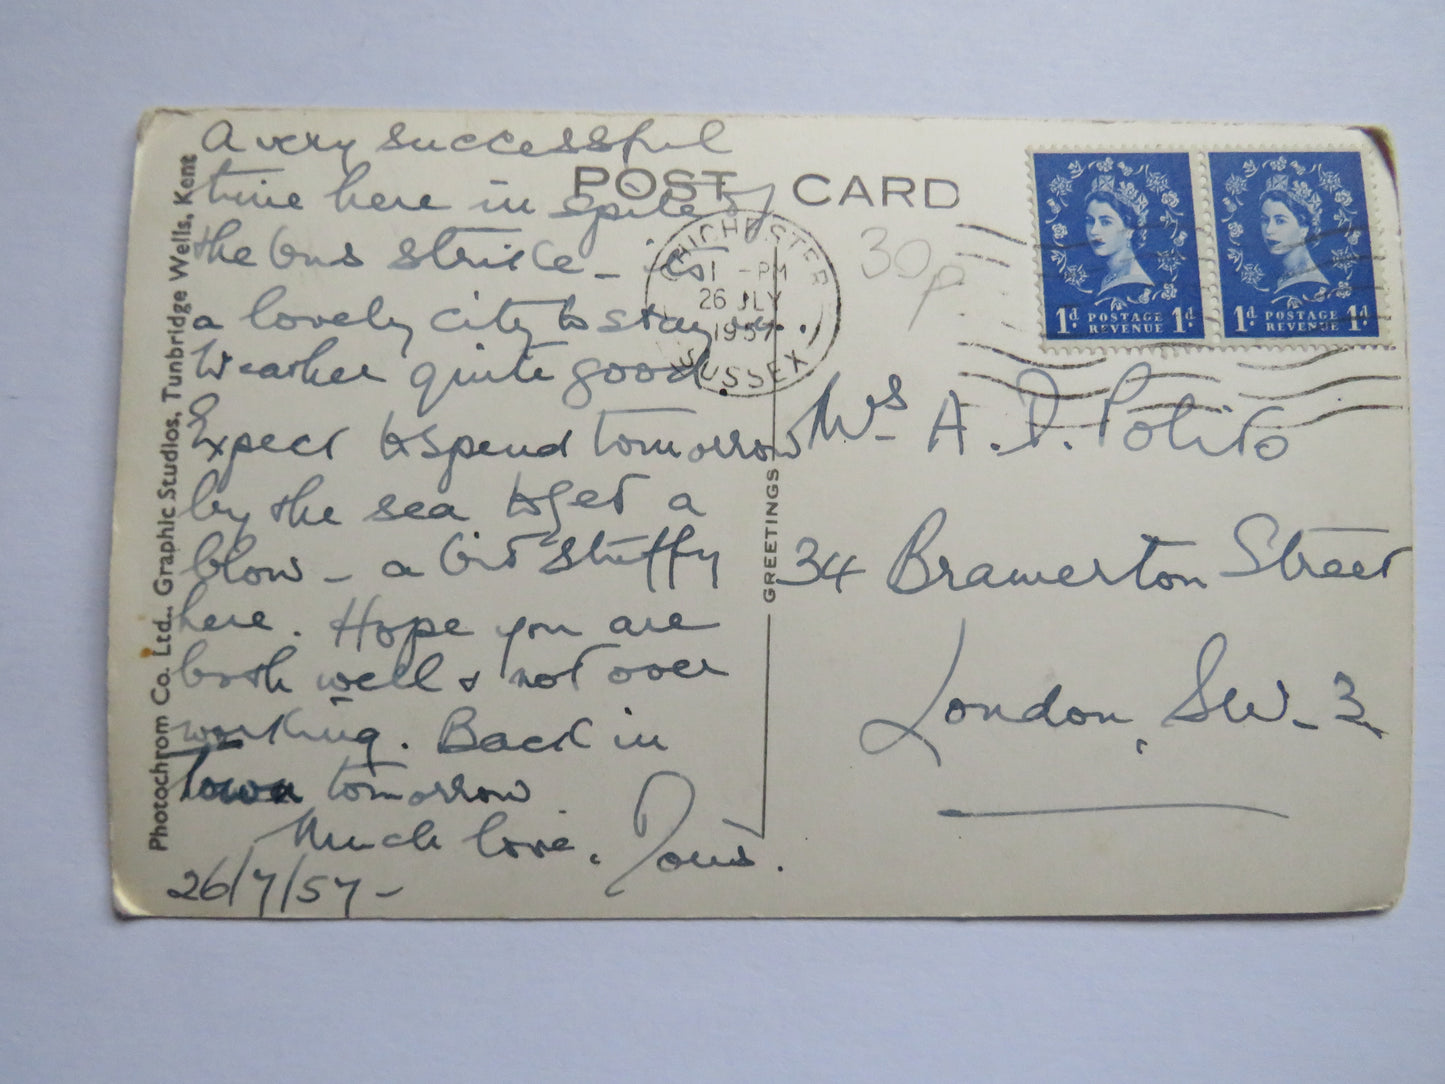 A very successful
time here in spite of
the bus strike - it's
a lovely city to stay in.
Weather quite good.
Expect to spend tomorrow
by the sea to get a
blow - a bit stuffy
here. Hope you are
both well & not over
working. Back in
Town tomorrow
Much love.
26/7/57-
POST CARD
CHICHESTER
1 -PM
26 JLY
1957
SUSSEX
30p
1d POSTAGE REVENUE 1d
1d POSTAGE REVENUE 1d
Mrs A. D. Polito
34 Bramerton Street
London, SW-3
GREETINGS
Photochrom Co. Ltd., Graphic Studios, Tunbridge Wells, Kent